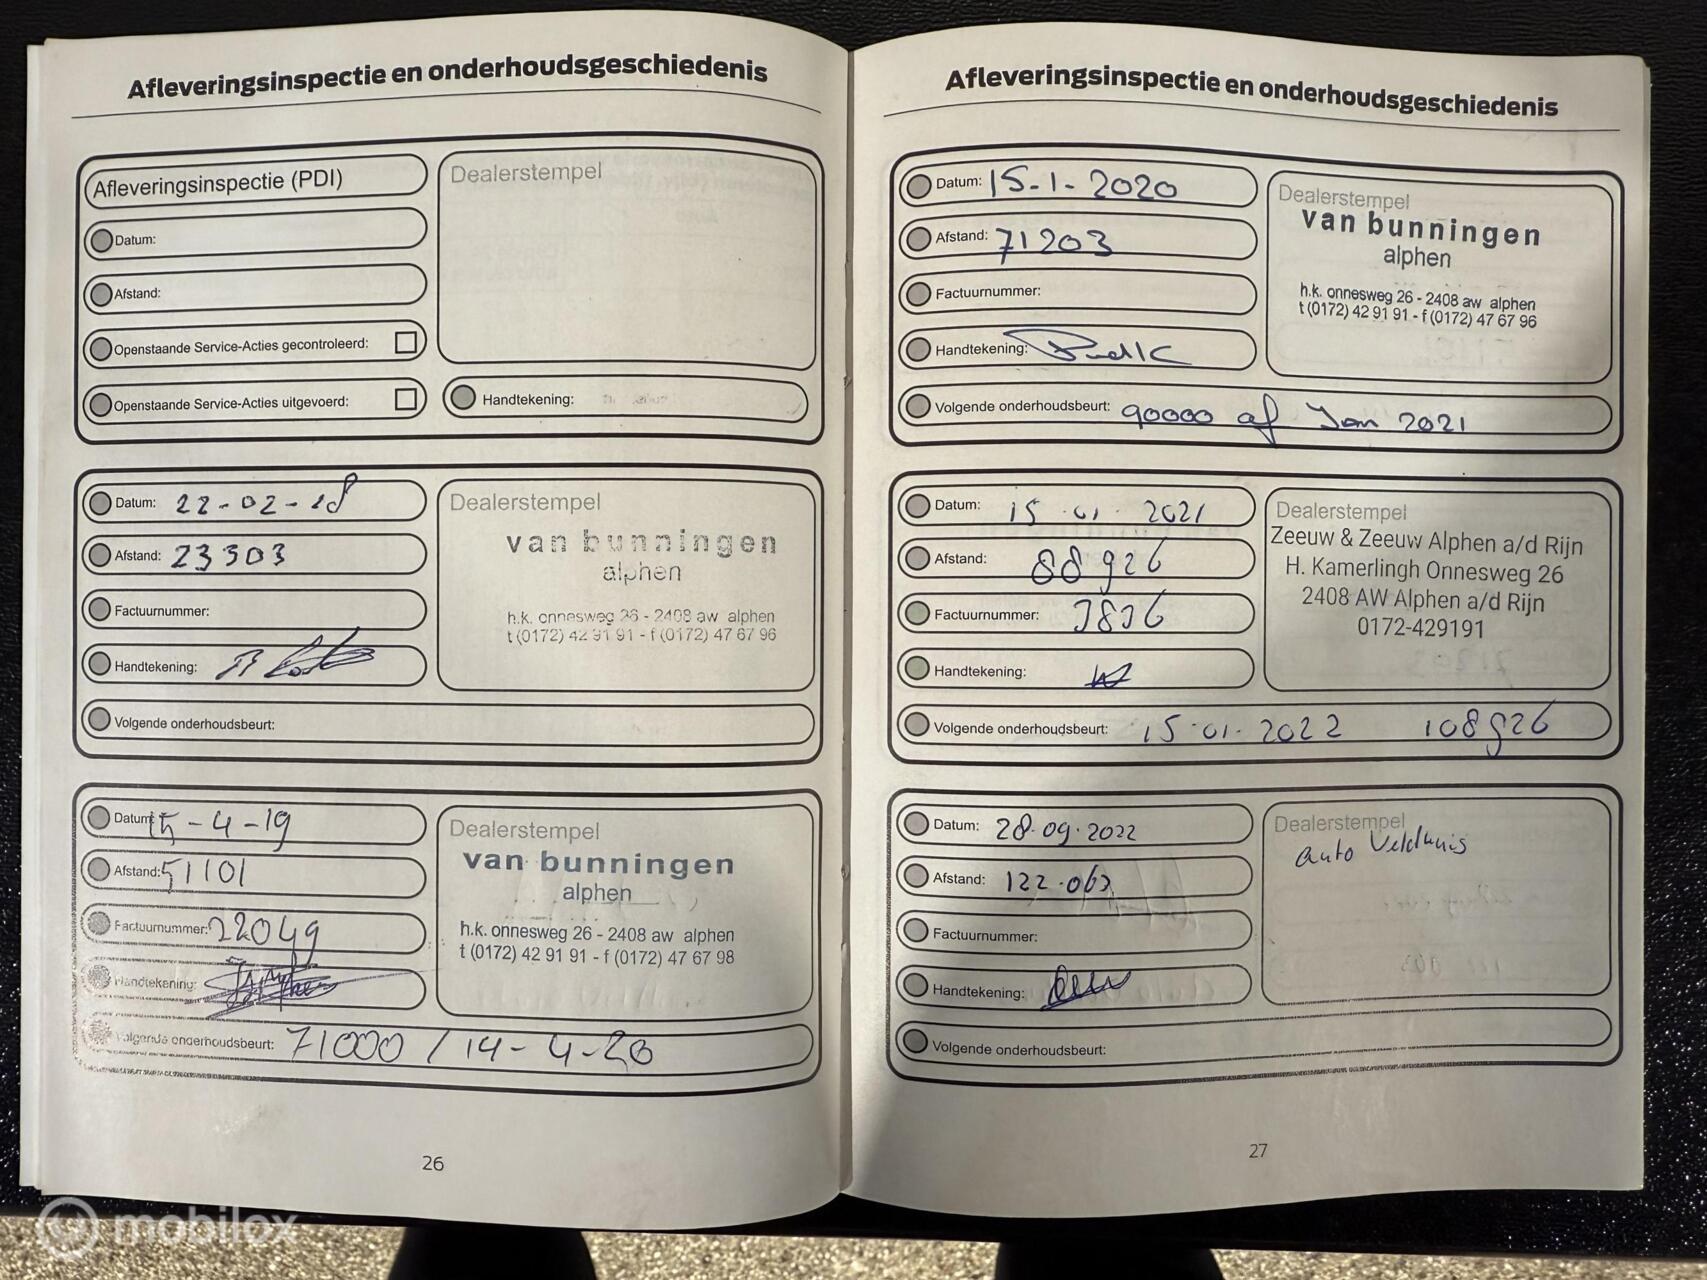 Afleveringsinspectie en onderhoudsgeschiedenis
Afleveringsinspectie (PDI)
Datum:
Afstand:
Openstaande Service-Acties gecontroleerd:
Openstaande Service-Acties uitgevoerd:
Dealerstempel
Handtekening:
Datum: 22-02-18
Afstand: 23303
Factuurnummer:
Handtekening:
Volgende onderhoudsbeurt:
Dealerstempel
van bunningen
alphen
h.k. onnesweg 26 - 2408 aw alphen
t (0172) 42 91 91 - f (0172) 47 67 96
Datum: 15-4-19
Afstand: 51101
Factuurnummer: 22049
Handtekening:
Volgende onderhoudsbeurt: 71000 / 14-4-20
Dealerstempel
van bunningen
alphen
h.k. onnesweg 26 - 2408 aw alphen
t (0172) 42 91 91 - f (0172) 47 67 98
26
Afleveringsinspectie en onderhoudsgeschiedenis
Datum: 15-1-2020
Afstand: 71203
Factuurnummer:
Handtekening:
Volgende onderhoudsbeurt: 90000 of Jan 2021
Dealerstempel
van bunningen
alphen
h.k. onnesweg 26 - 2408 aw alphen
t (0172) 42 91 91 - f (0172) 47 67 96
Datum: 15-01-2021
Afstand: 88926
Factuurnummer:
Handtekening:
Volgende onderhoudsbeurt: 15-01-2022 108926
Dealerstempel
Zeeuw & Zeeuw Alphen a/d Rijn
H. Kamerlingh Onnesweg 26
2408 AW Alphen a/d Rijn
0172-429191
Datum: 28-09-2022
Afstand: 122.063
Factuurnummer:
Handtekening:
Volgende onderhoudsbeurt:
Dealerstempel
Auto Veldhuis
27
mobilox